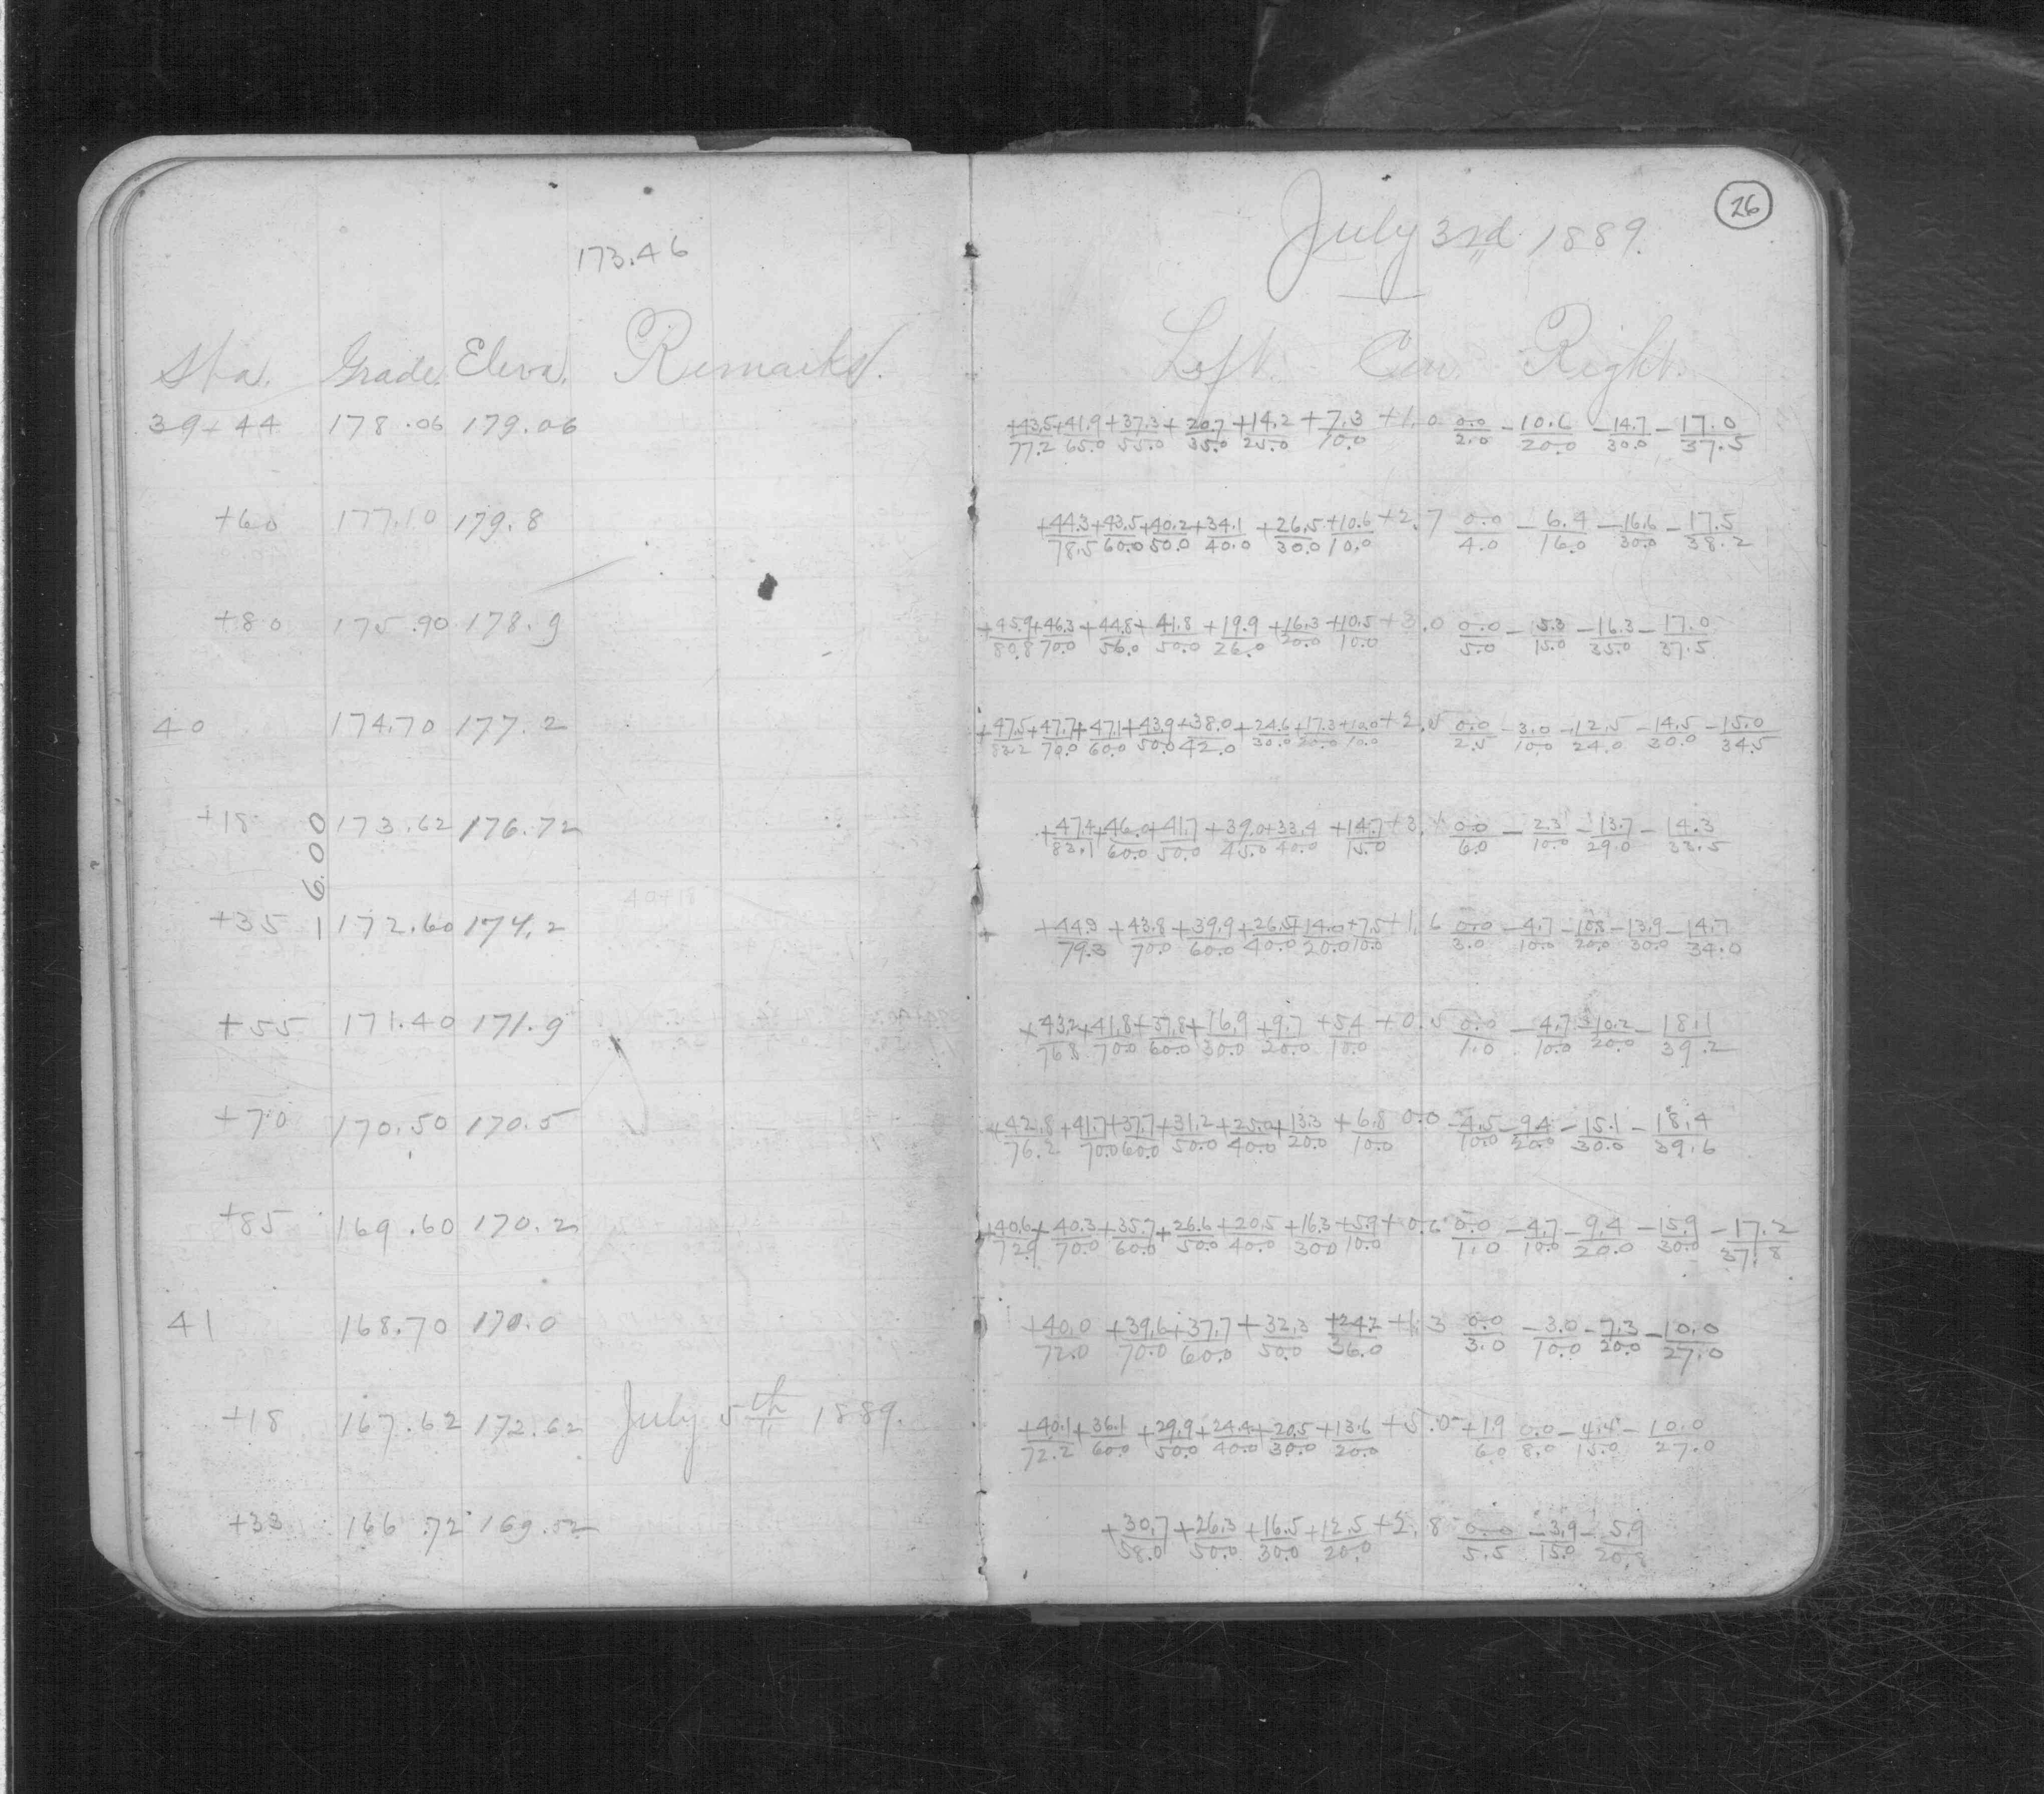 173.46
Sta. Grade. Eleva. Remarks.
39+44 178.06 179.06
+60 177.10 179.8
+80 175.90 178.9
40 174.70 177.2
+18 173.62 176.72
6.00
+35 172.60 174.2
40+18
+55 171.40 171.9
+70 170.50 170.5
+85 169.60 170.2
41 168.70 170.0
+18 167.62 172.62 July 5th 1889.
+33 166.72 169.52
26
July 3rd 1889.
Left. Cen. Right.
+43.5 +41.9 +37.3 +20.7 +14.2 +7.3 +1.0 0.0 -10.6 -14.7 -17.0
77.2 65.0 55.0 35.0 25.0 10.0 2.0 20.0 30.0 37.5
+44.3 +43.5 +40.2 +34.1 +26.5 +10.6 +2.7 0.0 -6.4 -16.6 -17.5
78.5 60.0 50.0 40.0 30.0 10.0 4.0 16.0 30.0 38.2
+45.9 +46.3 +44.8 +41.8 +19.9 +16.3 +10.5 +3.0 0.0 -15.3 -16.3 -17.0
80.8 70.0 56.0 50.0 26.0 20.0 10.0 5.0 15.0 35.0 37.5
+47.5 +47.7 +47.1 +43.9 +38.0 +24.6 +17.3 +10.0 +2.5 0.0 -3.0 -12.5 -14.5 -15.0
83.2 70.0 60.0 50.0 42.0 30.0 20.0 10.0 2.5 10.0 24.0 30.0 34.5
+47.4 +46.0 +41.7 +39.0 +33.4 +14.7 +3. 0.0 -2.3 -13.7 -14.3
83.1 60.0 50.0 45.0 40.0 15.0 6.0 10.0 29.0 33.5
+44.9 +43.8 +39.9 +26.5 +14.0 +7.5 +1.6 0.0 -4.7 -10.8 -13.9 -14.7
79.3 70.0 60.0 40.0 20.0 10.0 3.0 10.0 20.0 30.0 34.0
+43.2 +41.8 +37.8 +16.9 +9.7 +5.4 +0.5 0.0 -4.7 -10.2 -18.1
76.8 70.0 60.0 30.0 20.0 10.0 1.0 10.0 20.0 39.2
+42.8 +41.7 +37.7 +31.2 +25.0 +13.3 +6.8 0.0 -4.5 -9.4 -15.1 -18.4
76.2 70.0 60.0 50.0 40.0 20.0 10.0 10.0 20.0 30.0 39.6
+40.6 +40.3 +35.7 +26.6 +20.5 +16.3 +5.9 +0.6 0.0 -4.7 -9.4 -15.9 -17.2
72.9 70.0 60.0 50.0 40.0 30.0 10.0 1.0 10.0 20.0 30.0 37.8
+40.0 +39.6 +37.7 +32.3 +24.2 +1.3 0.0 -3.0 -7.3 -10.0
72.0 70.0 60.0 50.0 36.0 3.0 10.0 20.0 27.0
+40.1 +36.1 +29.9 +24.4 +20.5 +13.6 +5.0 +1.9 0.0 -4.4 -10.0
72.2 60.0 50.0 40.0 30.0 20.0 6.0 8.0 15.0 27.0
+30.7 +26.3 +16.5 +12.5 +2.8 0.0 -3.9 -5.9
58.0 50.0 30.0 20.0 5.5 15.0 20.8